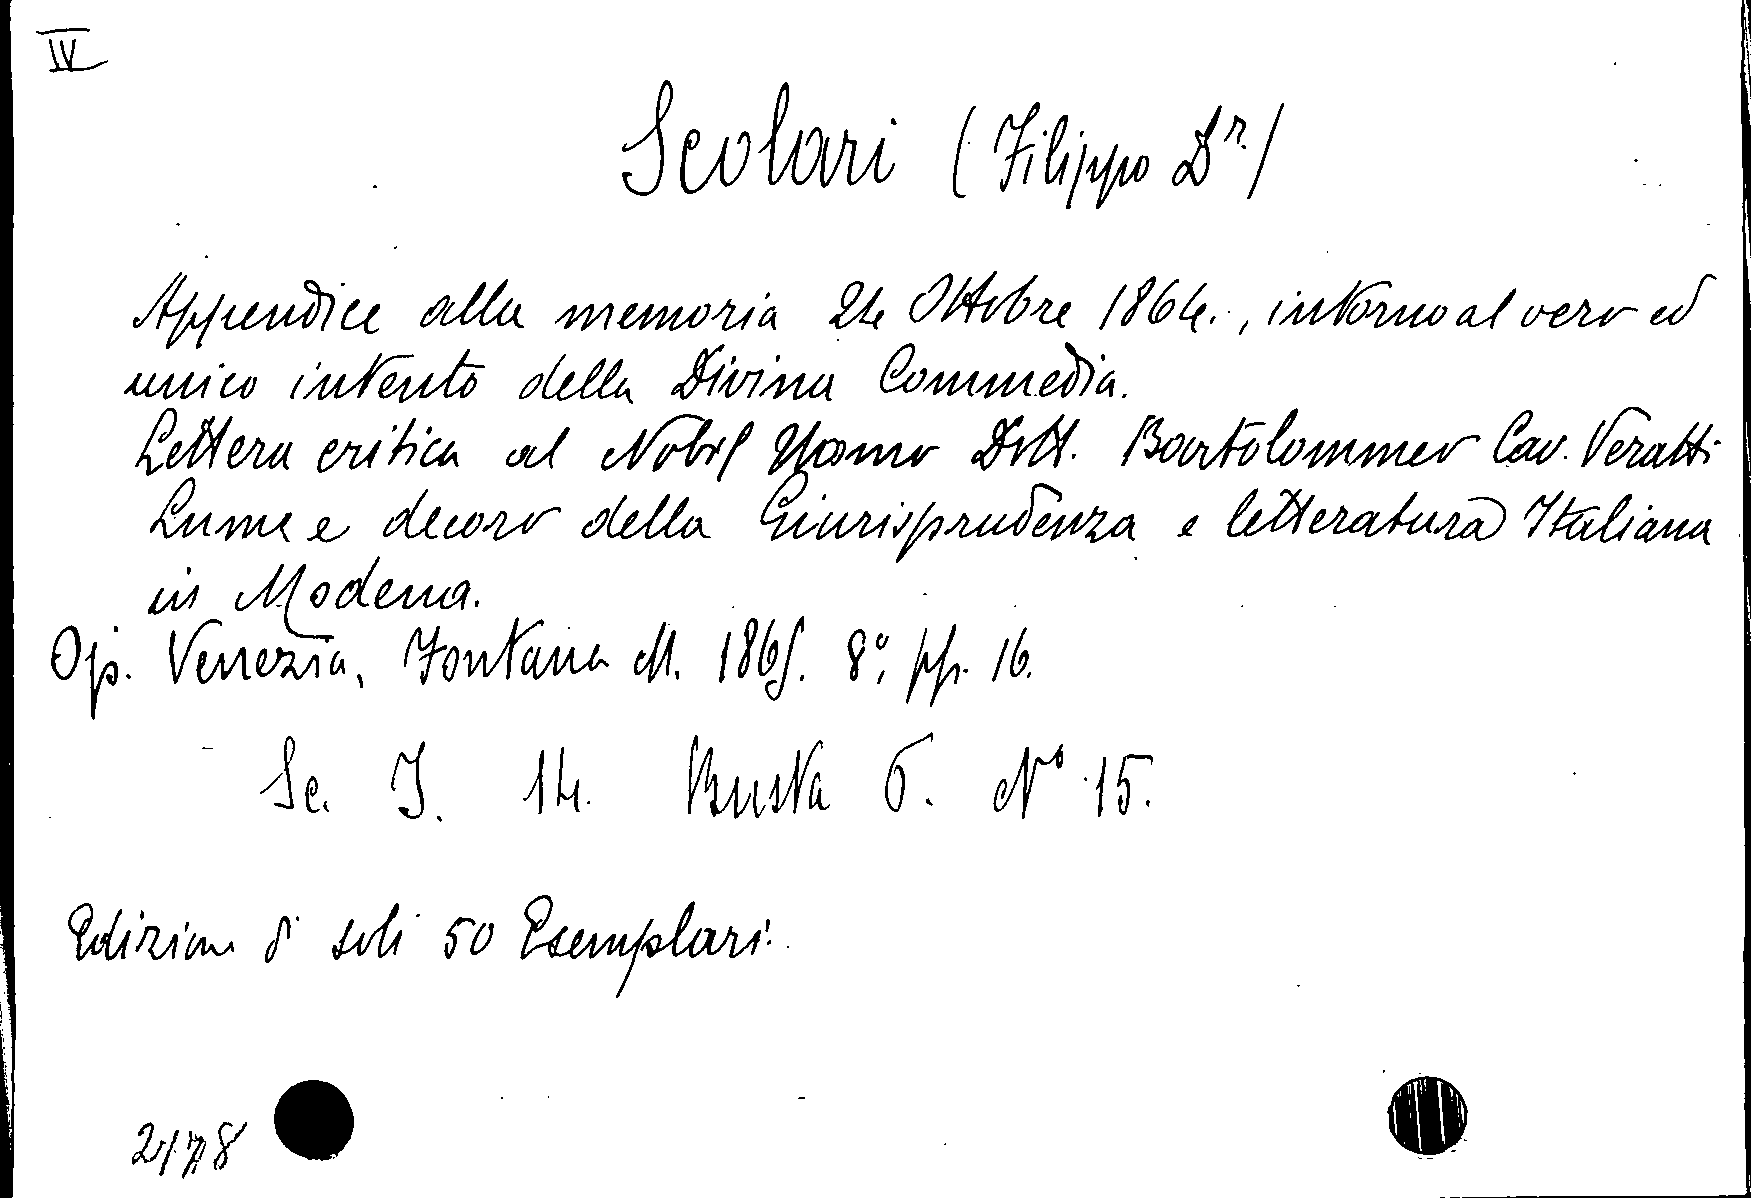 IV
Scolari (Filippo Dr.)
Appendice alla memoria 24 Ottobre 1864., intorno al vero ed
unico intento della Divina Commedia.
Lettera critica al Nobil Uomo Dott. Bartolommeo Cav. Veratti
Lume e decoro della Giurisprudenza e letteratura Italiana
in Modena.
Op. Venezia, Fontana M. 1865. 8º, pp. 16.
Sc. I. 14. Busta 6. Nº 15.
Edizione di soli 50 Esemplari.
2178